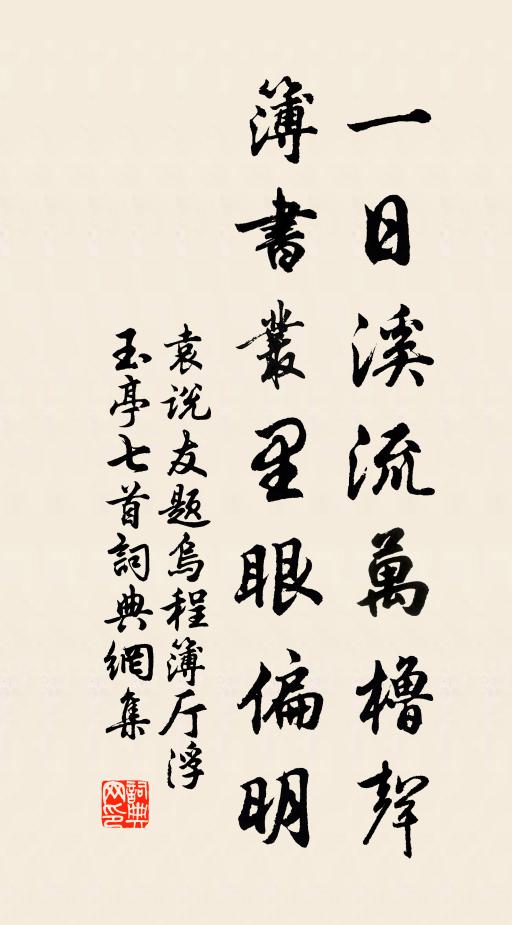 一日溪流萬櫓聲
簿書叢里眼偏明
袁说友題烏程簿厅浮
玉亭七首詞典網集
詞典网印